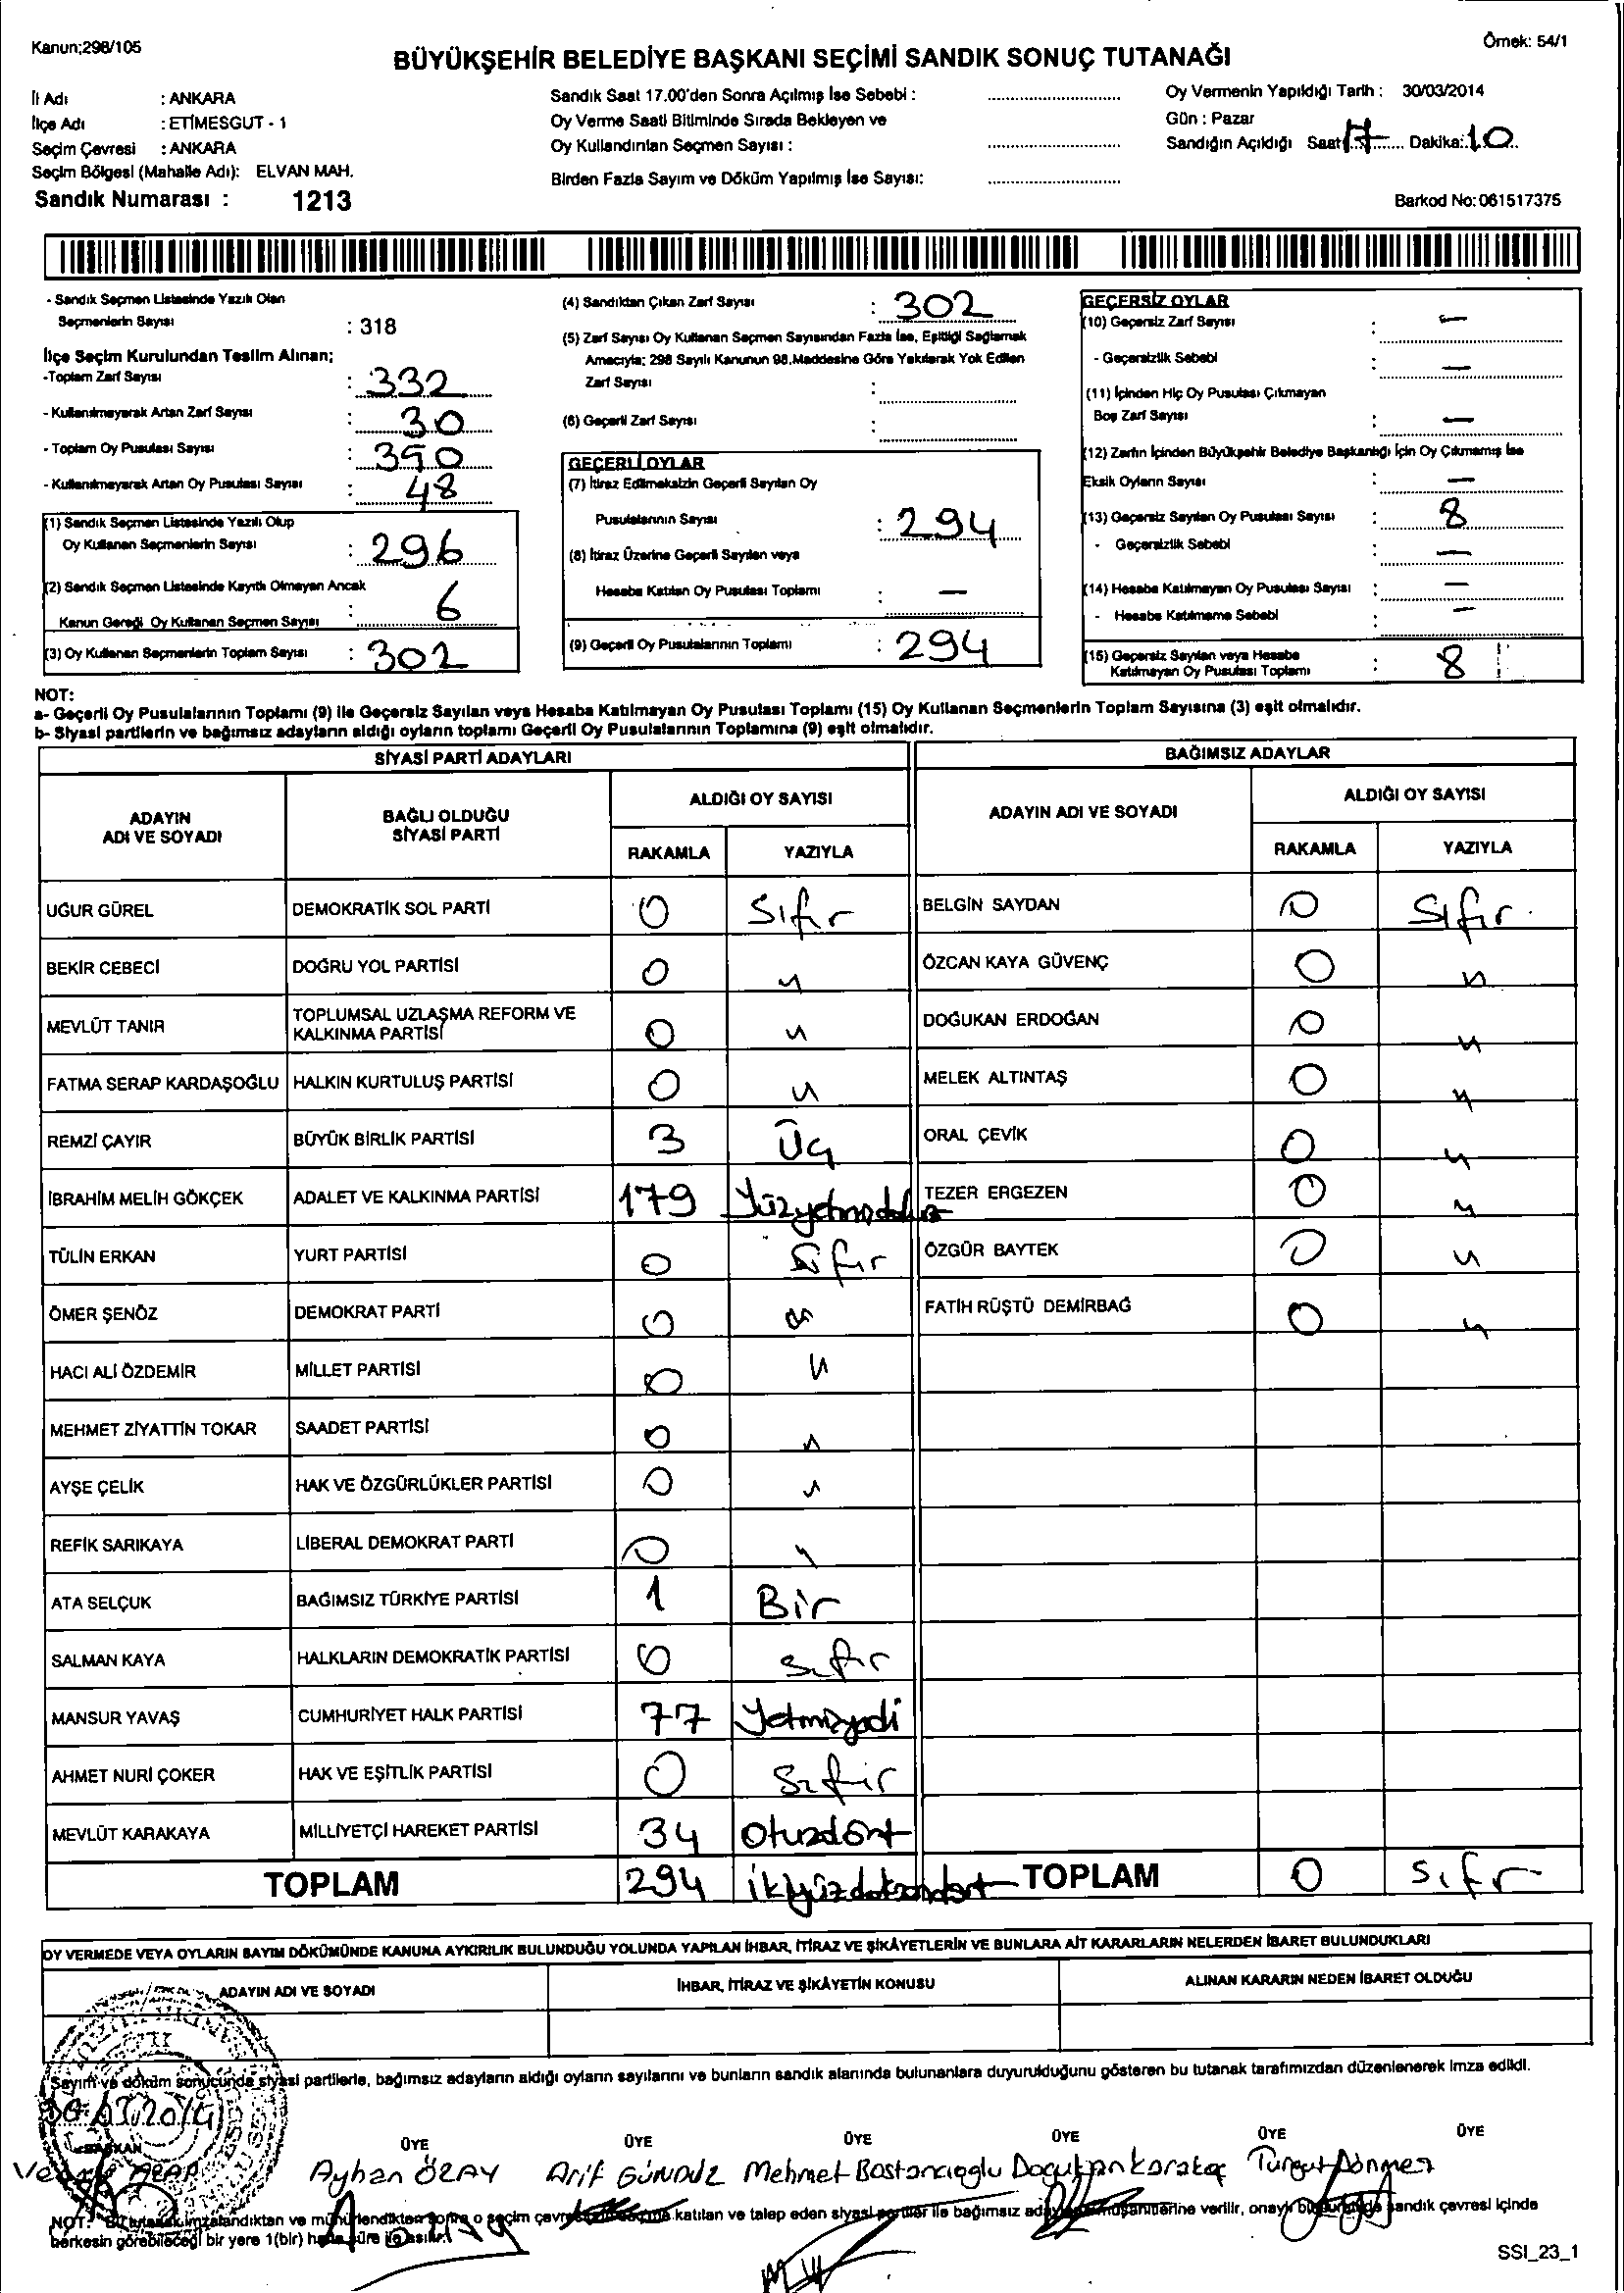 Kanun;298/105
Örnek: 54/1
BÜYÜKŞEHİR BELEDİYE BAŞKANI SEÇİMİ SANDIK SONUÇ TUTANAĞI
İl Adı : ANKARA
İlçe Adı : ETİMESGUT - 1
Seçim Çevresi : ANKARA
Seçim Bölgesi (Mahalle Adı): ELVAN MAH.
Sandık Numarası : 1213
Sandık Saat 17.00'den Sonra Açılmış İse Sebebi :
Oy Verme Saati Bitiminde Sırada Bekleyen ve
Oy Kullandırılan Seçmen Sayısı :
Birden Fazla Sayım ve Döküm Yapılmış İse Sayısı:
Oy Vermenin Yapıldığı Tarih : 30/03/2014
Gün : Pazar
Sandığın Açıldığı Saat: 17 Dakika: 10
Barkod No: 061517375
- Sandık Seçmen Listesinde Yazılı Olan
Seçmenlerin Sayısı : 318
İlçe Seçim Kurulundan Teslim Alınan;
-Toplam Zarf Sayısı : 332
- Kullanılmayarak Artan Zarf Sayısı : 30
- Toplam Oy Pusulası Sayısı : 390
- Kullanılmayarak Artan Oy Pusulası Sayısı : 48
(1) Sandık Seçmen Listesinde Yazılı Olup
Oy Kullanan Seçmenlerin Sayısı : 296
(2) Sandık Seçmen Listesinde Kayıtlı Olmayan Ancak
Kanun Gereği Oy Kullanan Seçmen Sayısı : 6
(3) Oy Kullanan Seçmenlerin Toplam Sayısı : 302
(4) Sandıktan Çıkan Zarf Sayısı : 302
(5) Zarf Sayısı Oy Kullanan Seçmen Sayısından Fazla İse, Eşitliği Sağlamak
Amacıyla; 298 Sayılı Kanunun 98.Maddesine Göre Yakılarak Yok Edilen
Zarf Sayısı :
(6) Geçerli Zarf Sayısı :
GEÇERLİ OYLAR
(7) İtiraz Edilmeksizin Geçerli Sayılan Oy
Pusulalarının Sayısı : 294
(8) İtiraz Üzerine Geçerli Sayılan veya
Hesaba Katılan Oy Pusulası Toplamı : —
(9) Geçerli Oy Pusulalarının Toplamı : 294
GEÇERSİZ OYLAR
(10) Geçersiz Zarf Sayısı : —
- Geçersizlik Sebebi : —
(11) İçinden Hiç Oy Pusulası Çıkmayan
Boş Zarf Sayısı : —
(12) Zarfın İçinden Büyükşehir Belediye Başkanlığı İçin Oy Çıkmamış İse
Eksik Oyların Sayısı : —
(13) Geçersiz Sayılan Oy Pusulası Sayısı : 8
- Geçersizlik Sebebi : —
(14) Hesaba Katılmayan Oy Pusulası Sayısı : —
- Hesaba Katılmama Sebebi : —
(15) Geçersiz Sayılan veya Hesaba
Katılmayan Oy Pusulası Toplamı : 8
NOT:
a- Geçerli Oy Pusulalarının Toplamı (9) ile Geçersiz Sayılan veya Hesaba Katılmayan Oy Pusulası Toplamı (15) Oy Kullanan Seçmenlerin Toplam Sayısına (3) eşit olmalıdır.
b- Siyasi partilerin ve bağımsız adayların aldığı oyların toplamı Geçerli Oy Pusulalarının Toplamına (9) eşit olmalıdır.
SİYASİ PARTİ ADAYLARI
ADAYIN ADI VE SOYADI
BAĞLI OLDUĞU SİYASİ PARTİ
ALDIĞI OY SAYISI
RAKAMLA YAZIYLA
UĞUR GÜREL DEMOKRATİK SOL PARTİ 0 Sıfır
BEKİR CEBECİ DOĞRU YOL PARTİSİ 0 "
MEVLÜT TANIR TOPLUMSAL UZLAŞMA REFORM VE KALKINMA PARTİSİ 0 "
FATMA SERAP KARDAŞOĞLU HALKIN KURTULUŞ PARTİSİ 0 "
REMZİ ÇAYIR BÜYÜK BİRLİK PARTİSİ 3 Üç
İBRAHİM MELİH GÖKÇEK ADALET VE KALKINMA PARTİSİ 179
TÜLİN ERKAN YURT PARTİSİ 0 Sıfır
ÖMER ŞENÖZ DEMOKRAT PARTİ 0
HACI ALİ ÖZDEMİR MİLLET PARTİSİ 0 "
MEHMET ZİYATTİN TOKAR SAADET PARTİSİ 0 "
AYŞE ÇELİK HAK VE ÖZGÜRLÜKLER PARTİSİ 0 "
REFİK SARIKAYA LİBERAL DEMOKRAT PARTİ 0 "
ATA SELÇUK BAĞIMSIZ TÜRKİYE PARTİSİ 1 Bir
SALMAN KAYA HALKLARIN DEMOKRATİK PARTİSİ 0 Sıfır
MANSUR YAVAŞ CUMHURİYET HALK PARTİSİ 77 Yetmişyedi
AHMET NURİ ÇOKER HAK VE EŞİTLİK PARTİSİ 0 Sıfır
MEVLÜT KARAKAYA MİLLİYETÇİ HAREKET PARTİSİ 34 Otuzdört
TOPLAM 294 ikiyüzdoksandört
BAĞIMSIZ ADAYLAR
ADAYIN ADI VE SOYADI
ALDIĞI OY SAYISI
RAKAMLA YAZIYLA
BELGİN SAYDAN 0 Sıfır
ÖZCAN KAYA GÜVENÇ 0 "
DOĞUKAN ERDOĞAN 0 "
MELEK ALTINTAŞ 0 "
ORAL ÇEVİK 0 "
TEZER ERGEZEN 0 "
ÖZGÜR BAYTEK 0 "
FATİH RÜŞTÜ DEMİRBAĞ 0 "
TOPLAM 0 Sıfır
OY VERMEDE VEYA OYLARIN SAYIM DÖKÜMÜNDE KANUNA AYKIRILIK BULUNDUĞU YOLUNDA YAPILAN İHBAR, İTİRAZ VE ŞİKÂYETLERİN VE BUNLARA AİT KARARLARIN NELERDEN İBARET BULUNDUKLARI
ADAYIN ADI VE SOYADI
İHBAR, İTİRAZ VE ŞİKÂYETİN KONUSU
ALINAN KARARIN NEDEN İBARET OLDUĞU
Sayım ve döküm sonucunda siyasi partilerle, bağımsız adayların aldığı oyların sayılarını ve bunların sandık alanında bulunanlara duyurulduğunu gösteren bu tutanak tarafımızdan düzenlenerek imza edildi.
BAŞKAN ÜYE ÜYE ÜYE ÜYE ÜYE ÜYE
Ayhan ÖZAY Arif GÜNDÜZ Mehmet Bostancıoğlu Turgut Dönmez
NOT: Bu tutanak imzalandıktan ve mühürlendikten sonra o seçim katılan ve talep eden siyasi partiler ile bağımsız verilir, sandık çevresi içinde
herkesin görebileceği bir yere 1(bir) hafta süre ile asılır.
SSI_23_1